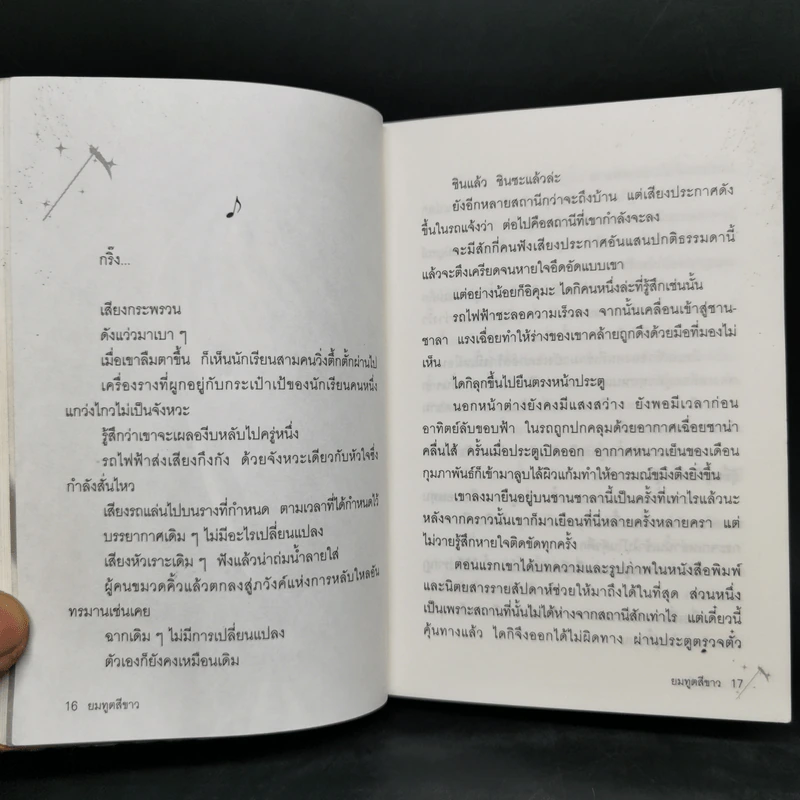 กริ๊ง...
เสียงกระพรวน
ดังแว่วมาเบา ๆ
เมื่อเขาลืมตาขึ้น ก็เห็นนักเรียนสามคนวิ่งตึ้กตั้กผ่านไป
เครื่องรางที่ผูกอยู่กับกระเป๋าเป้ของนักเรียนคนหนึ่ง
แกว่งไกวไม่เป็นจังหวะ
รู้สึกว่าเขาจะเผลองีบหลับไปครู่หนึ่ง
รถไฟฟ้าส่งเสียงกึงกัง ด้วยจังหวะเดียวกับหัวใจซึ่ง
กำลังสั่นไหว
เสียงรถแล่นไปบนรางที่กำหนด ตามเวลาที่ได้กำหนดไว้
บรรยากาศเดิม ๆ ไม่มีอะไรเปลี่ยนแปลง
เสียงหัวเราะเดิม ๆ ฟังแล้วน่าถ่มน้ำลายใส่
ผู้คนขมวดคิ้วแล้วตกลงสู่ภวังค์แห่งการหลับใหลอัน
ทรมานเช่นเคย
ฉากเดิม ๆ ไม่มีการเปลี่ยนแปลง
ตัวเองก็ยังคงเหมือนเดิม
16 ยมทูตสีขาว
ชินแล้ว ชินซะแล้วล่ะ
ยังอีกหลายสถานีกว่าจะถึงบ้าน แต่เสียงประกาศดัง
ขึ้นในรถแจ้งว่า ต่อไปคือสถานีที่เขากำลังจะลง
จะมีสักกี่คนฟังเสียงประกาศอันแสนปกติธรรมดานี้
แล้วจะตึงเครียดจนหายใจอึดอัดแบบเขา
แต่อย่างน้อยก็อิคุมะ ไดกิคนหนึ่งล่ะที่รู้สึกเช่นนั้น
รถไฟฟ้าชะลอความเร็วลง จากนั้นเคลื่อนเข้าสู่ชาน-
ชาลา แรงเฉื่อยทำให้ร่างของเขาคล้ายถูกดึงด้วยมือที่มองไม่
เห็น
ไดกิลุกขึ้นไปยืนตรงหน้าประตู
นอกหน้าต่างยังคงมีแสงสว่าง ยังพอมีเวลาก่อน
อาทิตย์ลับขอบฟ้า ในรถถูกปกคลุมด้วยอากาศเฉื่อยชาน่า
คลื่นไส้ ครั้นเมื่อประตูเปิดออก อากาศหนาวเย็นของเดือน
กุมภาพันธ์ก็เข้ามาลูบไล้ผิวแก้มทำให้อารมณ์ขมึงตึงยิ่งขึ้น
เขาลงมายืนอยู่บนชานชาลานี้เป็นครั้งที่เท่าไรแล้วนะ
หลังจากคราวนั้นเขาก็มาเยือนที่นี่หลายครั้งหลายครา แต่
ไม่วายรู้สึกหายใจติดขัดทุกครั้ง
ตอนแรกเขาได้บทความและรูปภาพในหนังสือพิมพ์
และนิตยสารรายสัปดาห์ช่วยให้มาถึงได้ในที่สุด ส่วนหนึ่ง
เป็นเพราะสถานที่นั้นไม่ได้ห่างจากสถานีสักเท่าไร แต่เดี๋ยวนี้
คุ้นทางแล้ว ไดกิจึงออกได้ไม่ผิดทาง ผ่านประตูตรวจตั๋ว
ยมทูตสีขาว 17